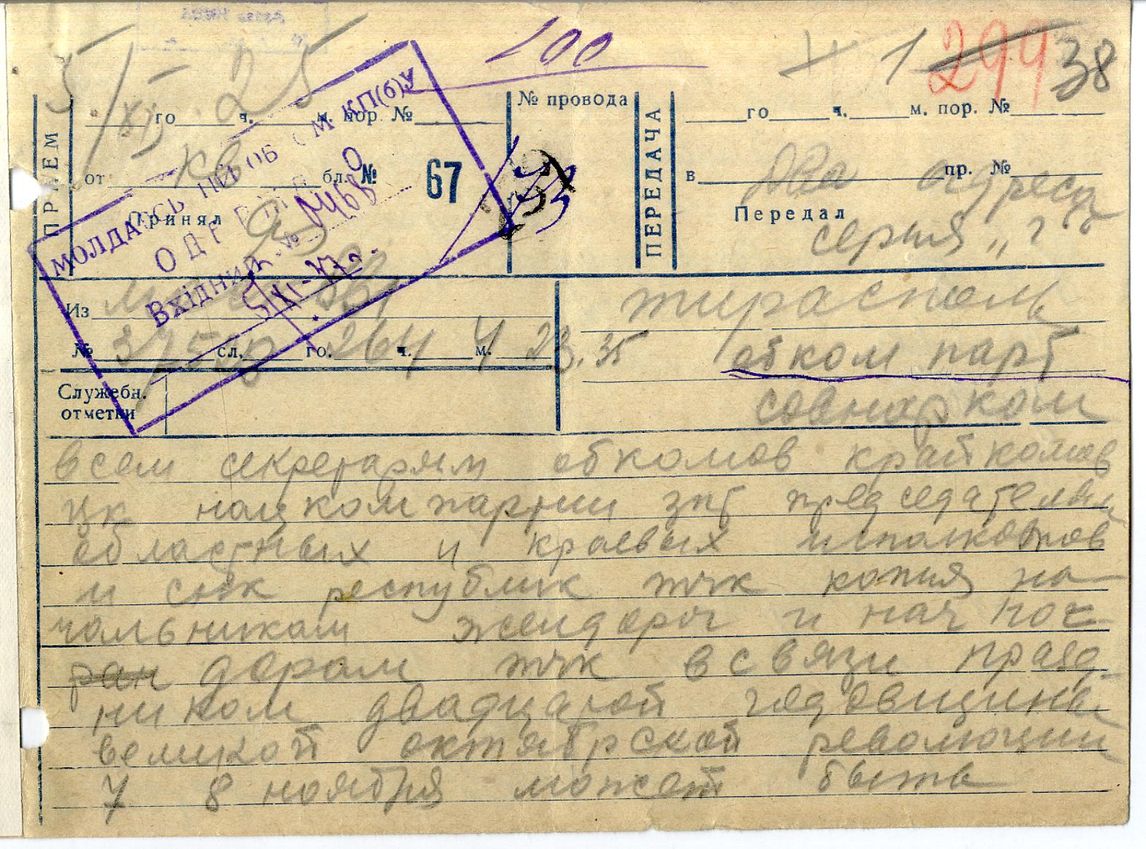 200
1 299 38
5/XI- 25
ПРИЕМ
го ч. м. пор. №
№ провода
ПЕРЕДАЧА
го ч. м. пор. №
от бл. № 67
в пр. №
Принял
Передал
Два адреса
серия „Г"
МОЛДАВСЬКИЙ ОБКОМ КП(б)У
Вхідний №
Из
тирасполь
№ сл. го. ч. м. 23.35
обком парт
Служебн.
отметки
совнарком
всем секретарям обкомов крайкомов
цк нацкомпартии зпт председателям
областных и краевых исполкомов
и снк республик тчк копия на-
чальникам желдорог и нач пог-
ран дорог тчк в связи празд
ником двадцатой годовщины
великой октябрской революции
7 8 ноября может быть